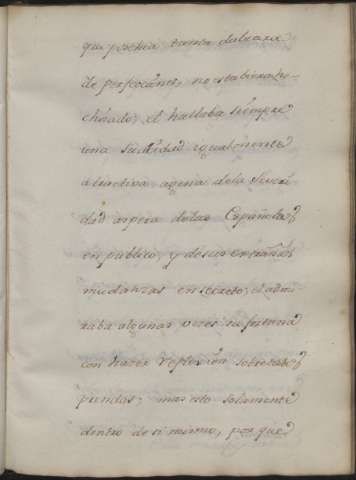 que podria tomar
de perfecciones, no estubiera he-
chizado, el hallaba siempre
una suavidad igualmente
atractiva, agena de la severi
dad aspera de las Españolas
en publico, y de sus extrañas
mudanzas en secreto, el admi
raba algunas veces su fortuna
con hacer reflexion sobre estos
puntos; mas esto solamente
dentro de si mismo, por que